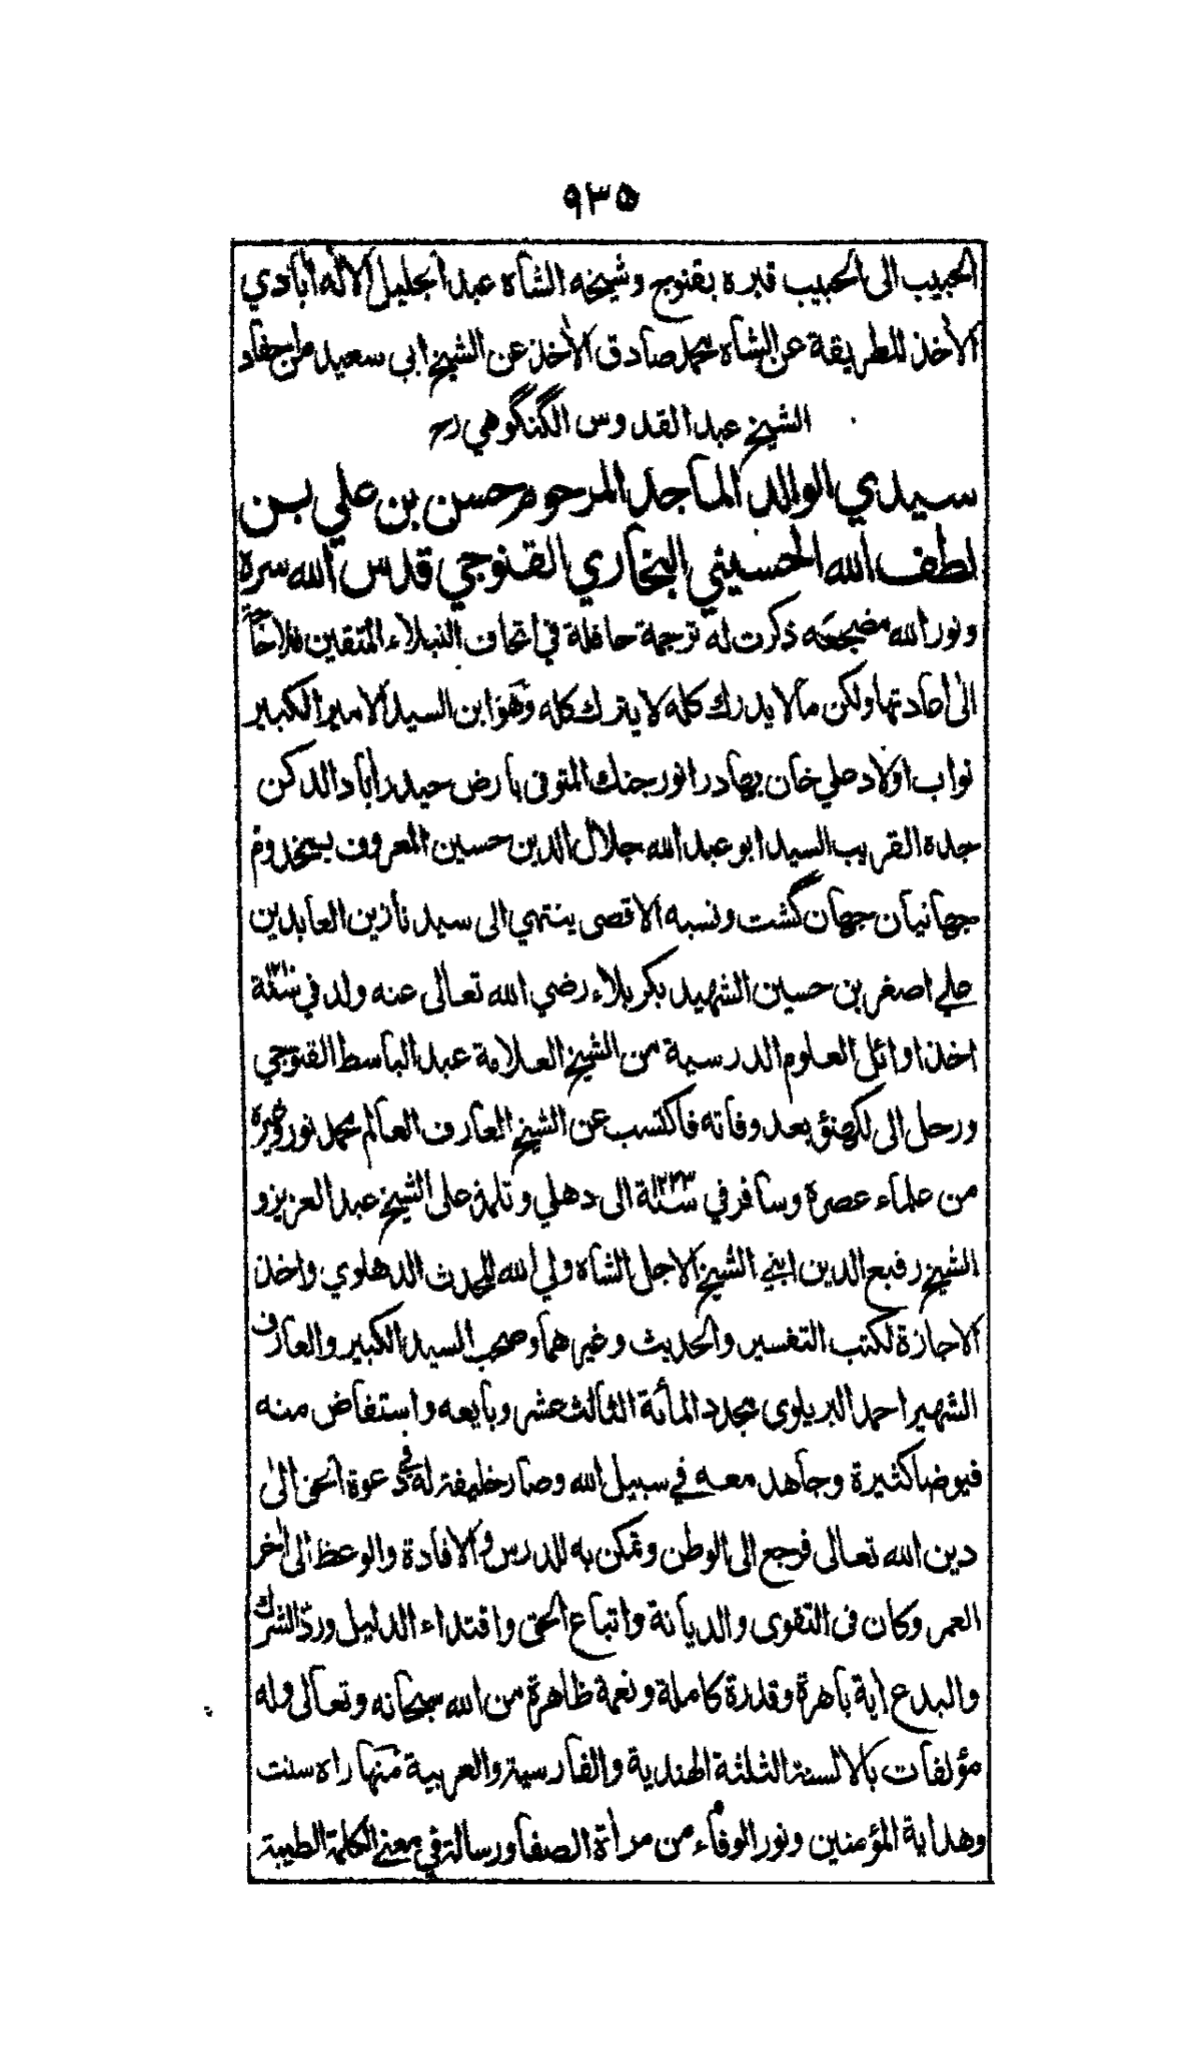 ٩٣٥
الحبيب الى الحبيب قبره بقنوج وشيخه الشاه عبد الجليل الاله ابادي
الآخذ للطريقة عن الشاه محمد صادق الآخذ عن الشيخ ابي سعيد من احفاد
الشيخ عبد القدوس الگنگوهي رح
سيدي الوالد الماجد المرحوم حسن بن علي بن
لطف الله الحسيني البخاري القنوجي قدس الله سره
ونور الله مضجعه ذكرت له ترجمة حافلة في اتحاف النبلاء المتقين فلا حاجة
الى اعادتها ولكن مالا يدرك كله لا يترك كله وهو ابن السيد الامير الكبير
نواب اولاد علي خان بهادر انور جنك المتوفى بارض حيدر اباد الدكن
جده القريب السيد ابو عبد الله جلال الدين حسين المعروف بمخدوم
جهانيان جهان گشت ونسبه الاقصى ينتهي الى سيدنا زين العابدين
علي اصغر بن حسين الشهيد بكربلاء رضي الله تعالى عنه ولد في سنة ١٢١٠
اخذ اوائل العلوم الدرسية من الشيخ العلامة عبد الباسط القنوجي
ورحل الى لكهنؤ بعد وفاته فاكتسب عن الشيخ العارف العالم محمد نور وغيره
من علماء عصره وسافر في سنة ١٢٣٣ الى دهلي وتلمذ على الشيخ عبد العزيز و
الشيخ رفيع الدين ابني الشيخ الاجل الشاه ولي الله المحدث الدهلوي واخذ
الاجازة لكتب التفسير والحديث وغيرهما وصحب السيد الكبير والعارف
الشهير احمد البريلوى مجدد المأئة الثالث عشر وبايعه واستفاض منه
فيوضا كثيرة وجاهد معه في سبيل الله وصار خليفة له في دعوة الخلق الى
دين الله تعالى فرجع الى الوطن وتمكن به للدرس والافادة والوعظ الى اخر
العمر وكان فى التقوى والديانة واتباع الحق واقتداء الدليل ورد الشرك
والبدع اية باهرة وقدرة كاملة ونعمة ظاهرة من الله سبحانه وتعالى وله
مؤلفات بالالسنة الثلثة الهندية والفارسية والعربية منها راه سنت
وهداية المؤمنين ونور الوفاء من مرأة الصفا ورسالة في معنى الكلمة الطيبة